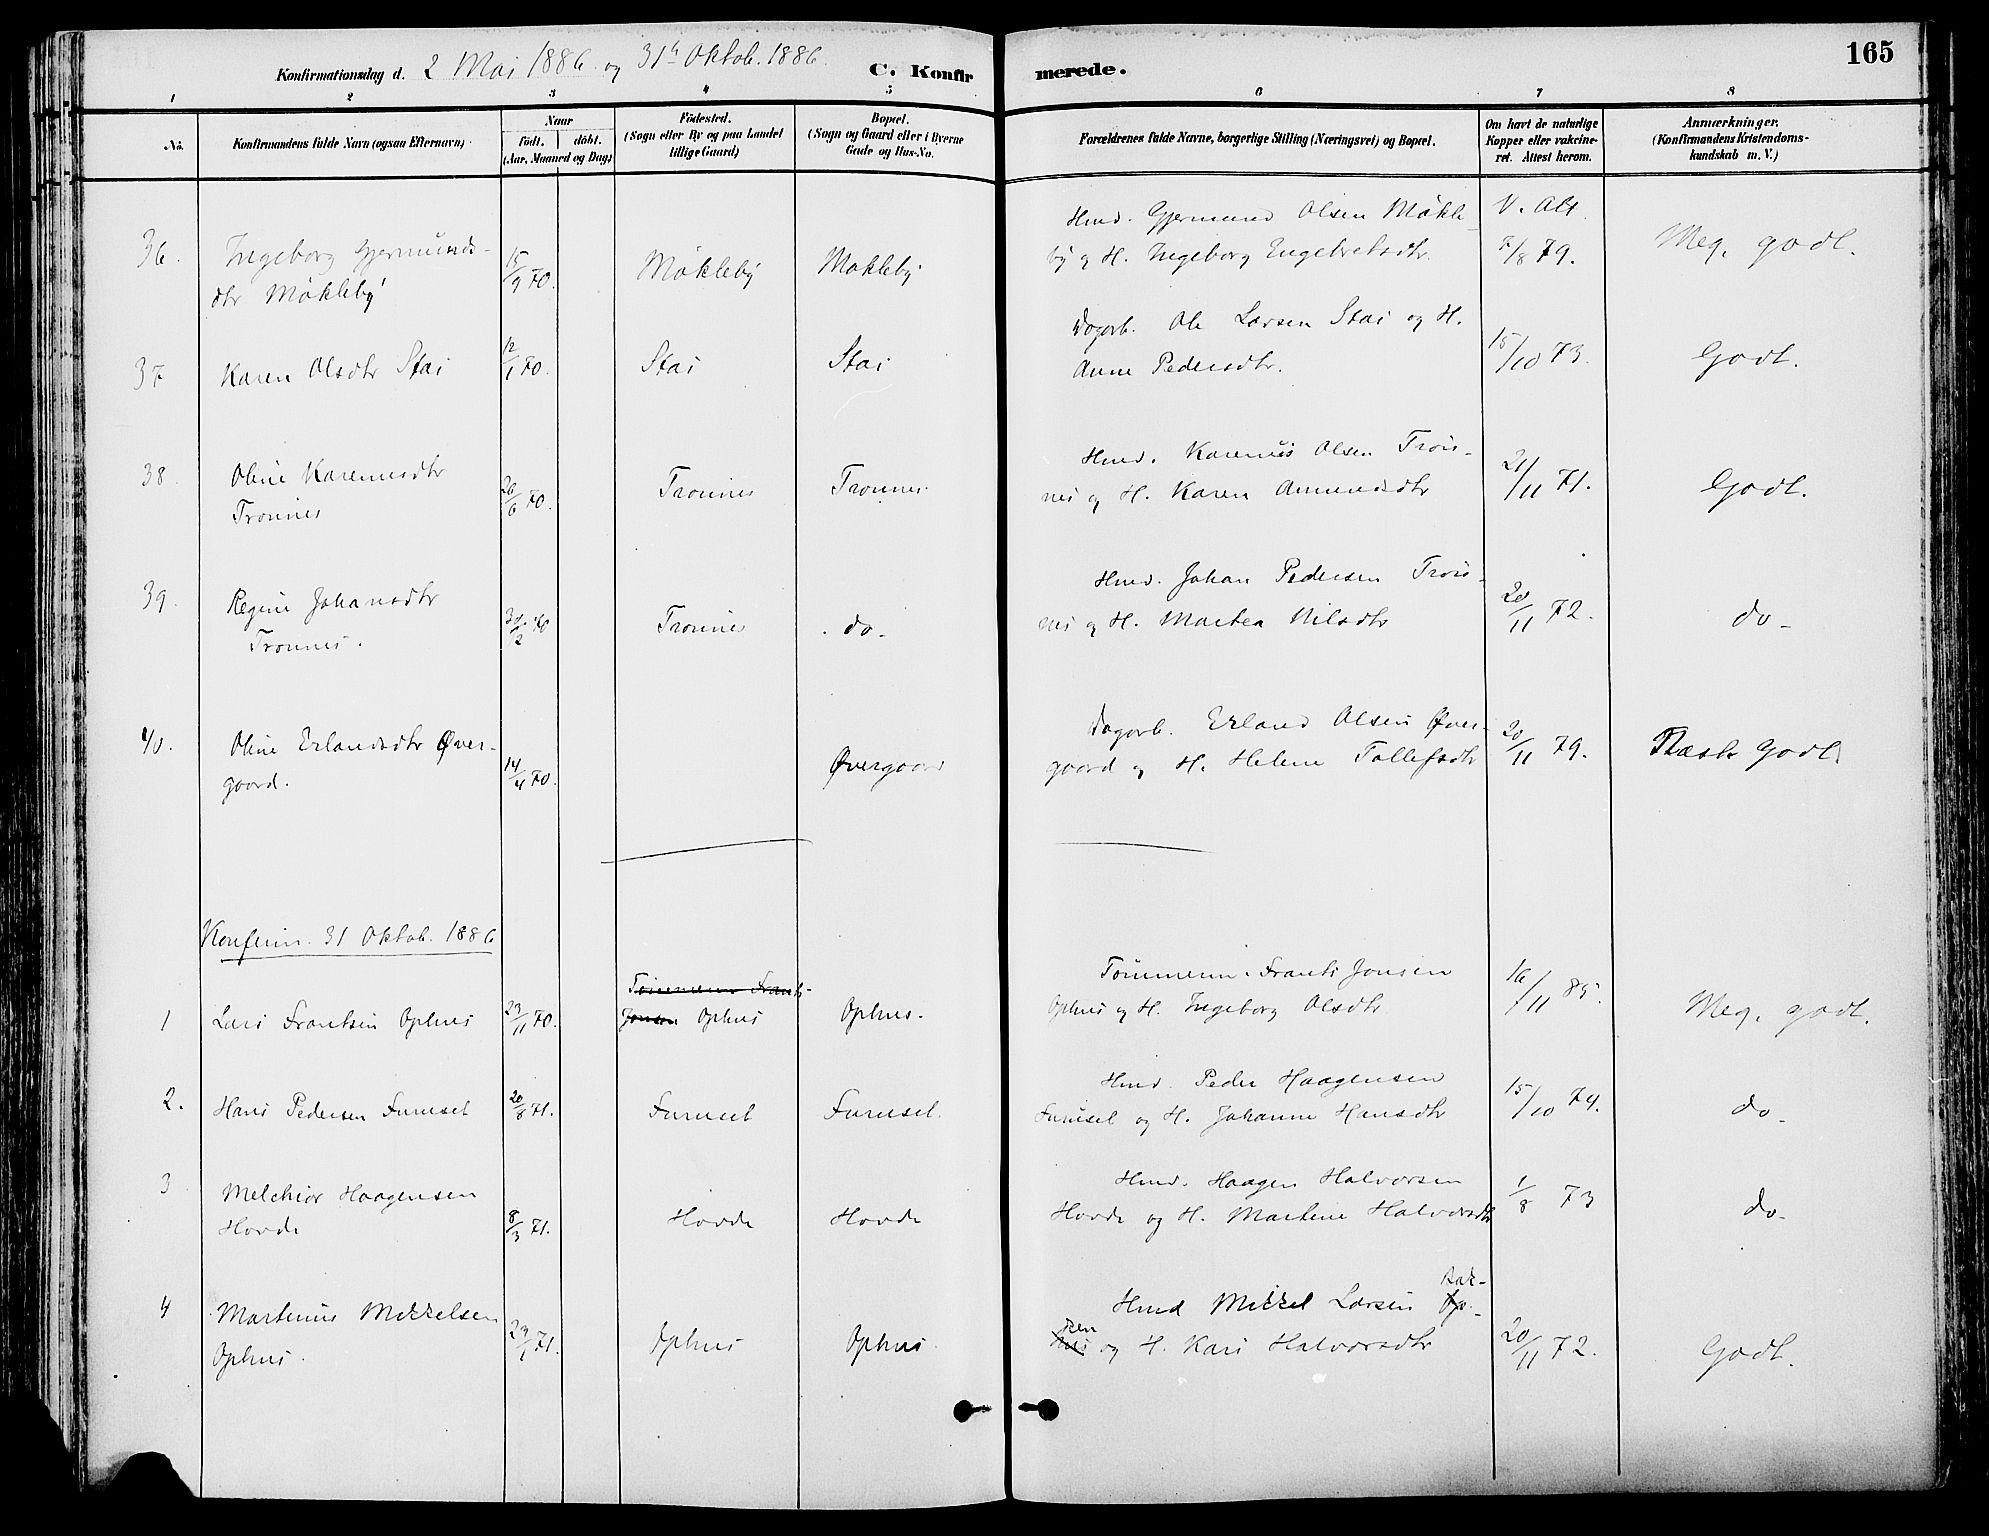 165
Konfirmationsdag d. 2 Mai 1886 og 31te Oktob. 1886.
C. Konfirmerede.
1 2 3 4 5 6 7 8
No.
Konfirmandens fulde Navn (ogsaa Efternavn).
Naar
födt. döbt.
(Aar, Maaned og Dag)
Födested.
(Sogn eller By og paa Landet
tillige Gaard)
Bopæl.
(Sogn og Gaard eller i Byerne
Gade og Hus-No.
Forældrenes fulde Navne, borgerlige Stilling (Næringsvei) og Bopæl.
Om havt de naturlige
Kopper eller vakcine-
ret. Attest herom.
Anmærkninger.
(Konfirmandens Kristendoms-
kundskab m. V.)
36. Ingeborg Gjermunds-
dtr Møkleby
15/9 70. Møkleby Møkleby
Hmd. Gjermund Olsen Møkle-
by og H. Ingeborg Engebretsdtr.
V. Att.
7/8 79.
Meg. godt.
37 Karen Olsdtr Stai
12/1 70. Stai Stai
Dagarb. Ole Larsen Stai og H.
Anne Pedersdtr.
15/10 73.
Godt.
38 Oline Karenusdtr
Trønnes
26/6 70. Trønnes Trønnes.
Hmd. Karenus Olsen Trøn-
nes og H. Karen Amundsdtr
21/11 71.
Godt.
39. Regine Johansdtr
Trønnes.
30/12 70 Trønnes do.
Hmd. Johan Pedersen Trøn-
nes og H. Martea Nilsdtr
20/11 72.
do.
40. Oline Erlandsdtr Øver-
gaard.
14/4 70. Øvergaard
Dagarb. Erland Olsen Øver-
gaard og H. Helene Tollefsdtr
20/11 79.
Næsten Godt
Konfirm. 31 Oktob. 1886
1 Lars Frantsen Ophus
23/11 70. Tømmerm Frants
Jonsen Ophus Ophus.
Tømmerm. Frants Jonsen
Ophus og H. Ingeborg Olsdtr
16/11 85.
Meg. godt.
2. Hans Pedersen Furuset
20/8 71. Furuset Furuset.
Hmd. Peder Haagensen
Furuset og H. Johanne Hansdtr
15/10 74.
do.
3 Melchior Haagensen
Hovde
8/3 71. Hovde Hovde
Hmd. Haagen Halvorsen
Hovde og H. Martene Halvorsdtr
1/8 73
do.
4 Martinus Mikkelsen
Ophus.
71. Ophus Ophus.
Hmd Mikkel Larsen Op-
hus og H. Kari Halvorsdtr
20/11 72.
Godt.